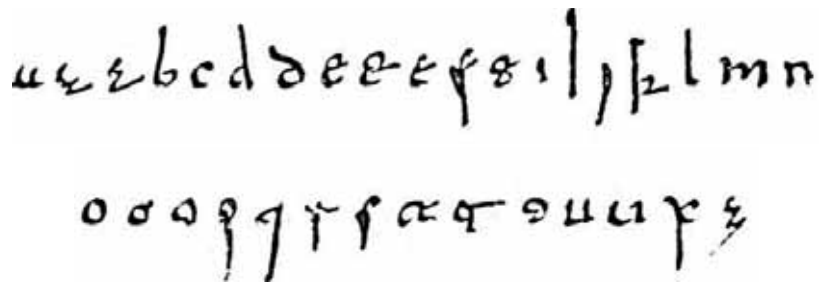 a a a b c d d e e e f g i I j k l m n
o o o p q r s t t t u u x z